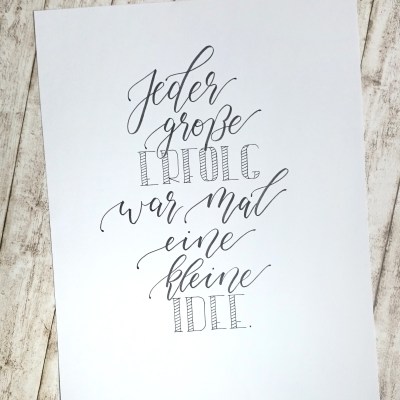 Jeder
große
ERFOLG
war mal
eine
kleine
IDEE.